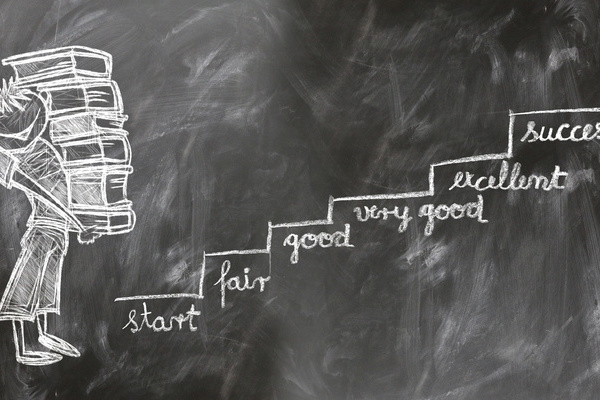 start
fair
good
very good
excellent
succes